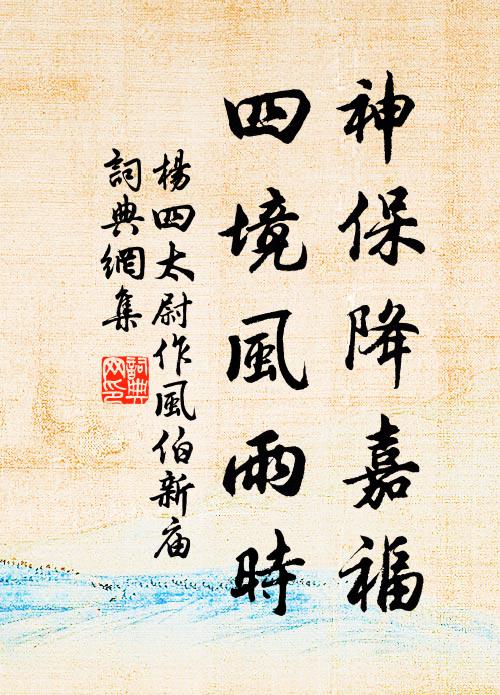 神保降嘉福
四境風雨時
楊四太尉作風伯新庙
詞典網集
詞典
网印